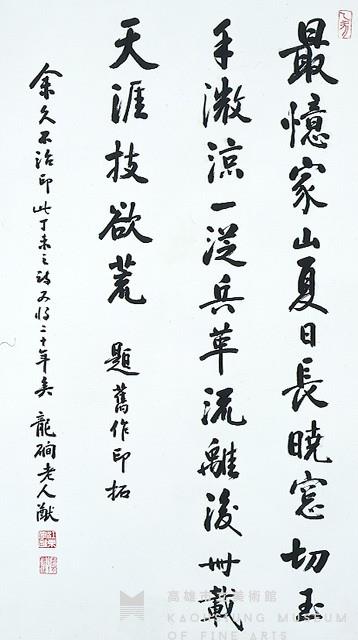 最憶家山夏日長曉窗切玉
手微涼一從兵革流離後卅載
天涯技欲荒 題舊作印拓
余久不治印此丁未之詩又將二十年矣 龍磵老人猷
高雄市立美術館
KAOHSIUNG MUSEUM
OF FINE ARTS